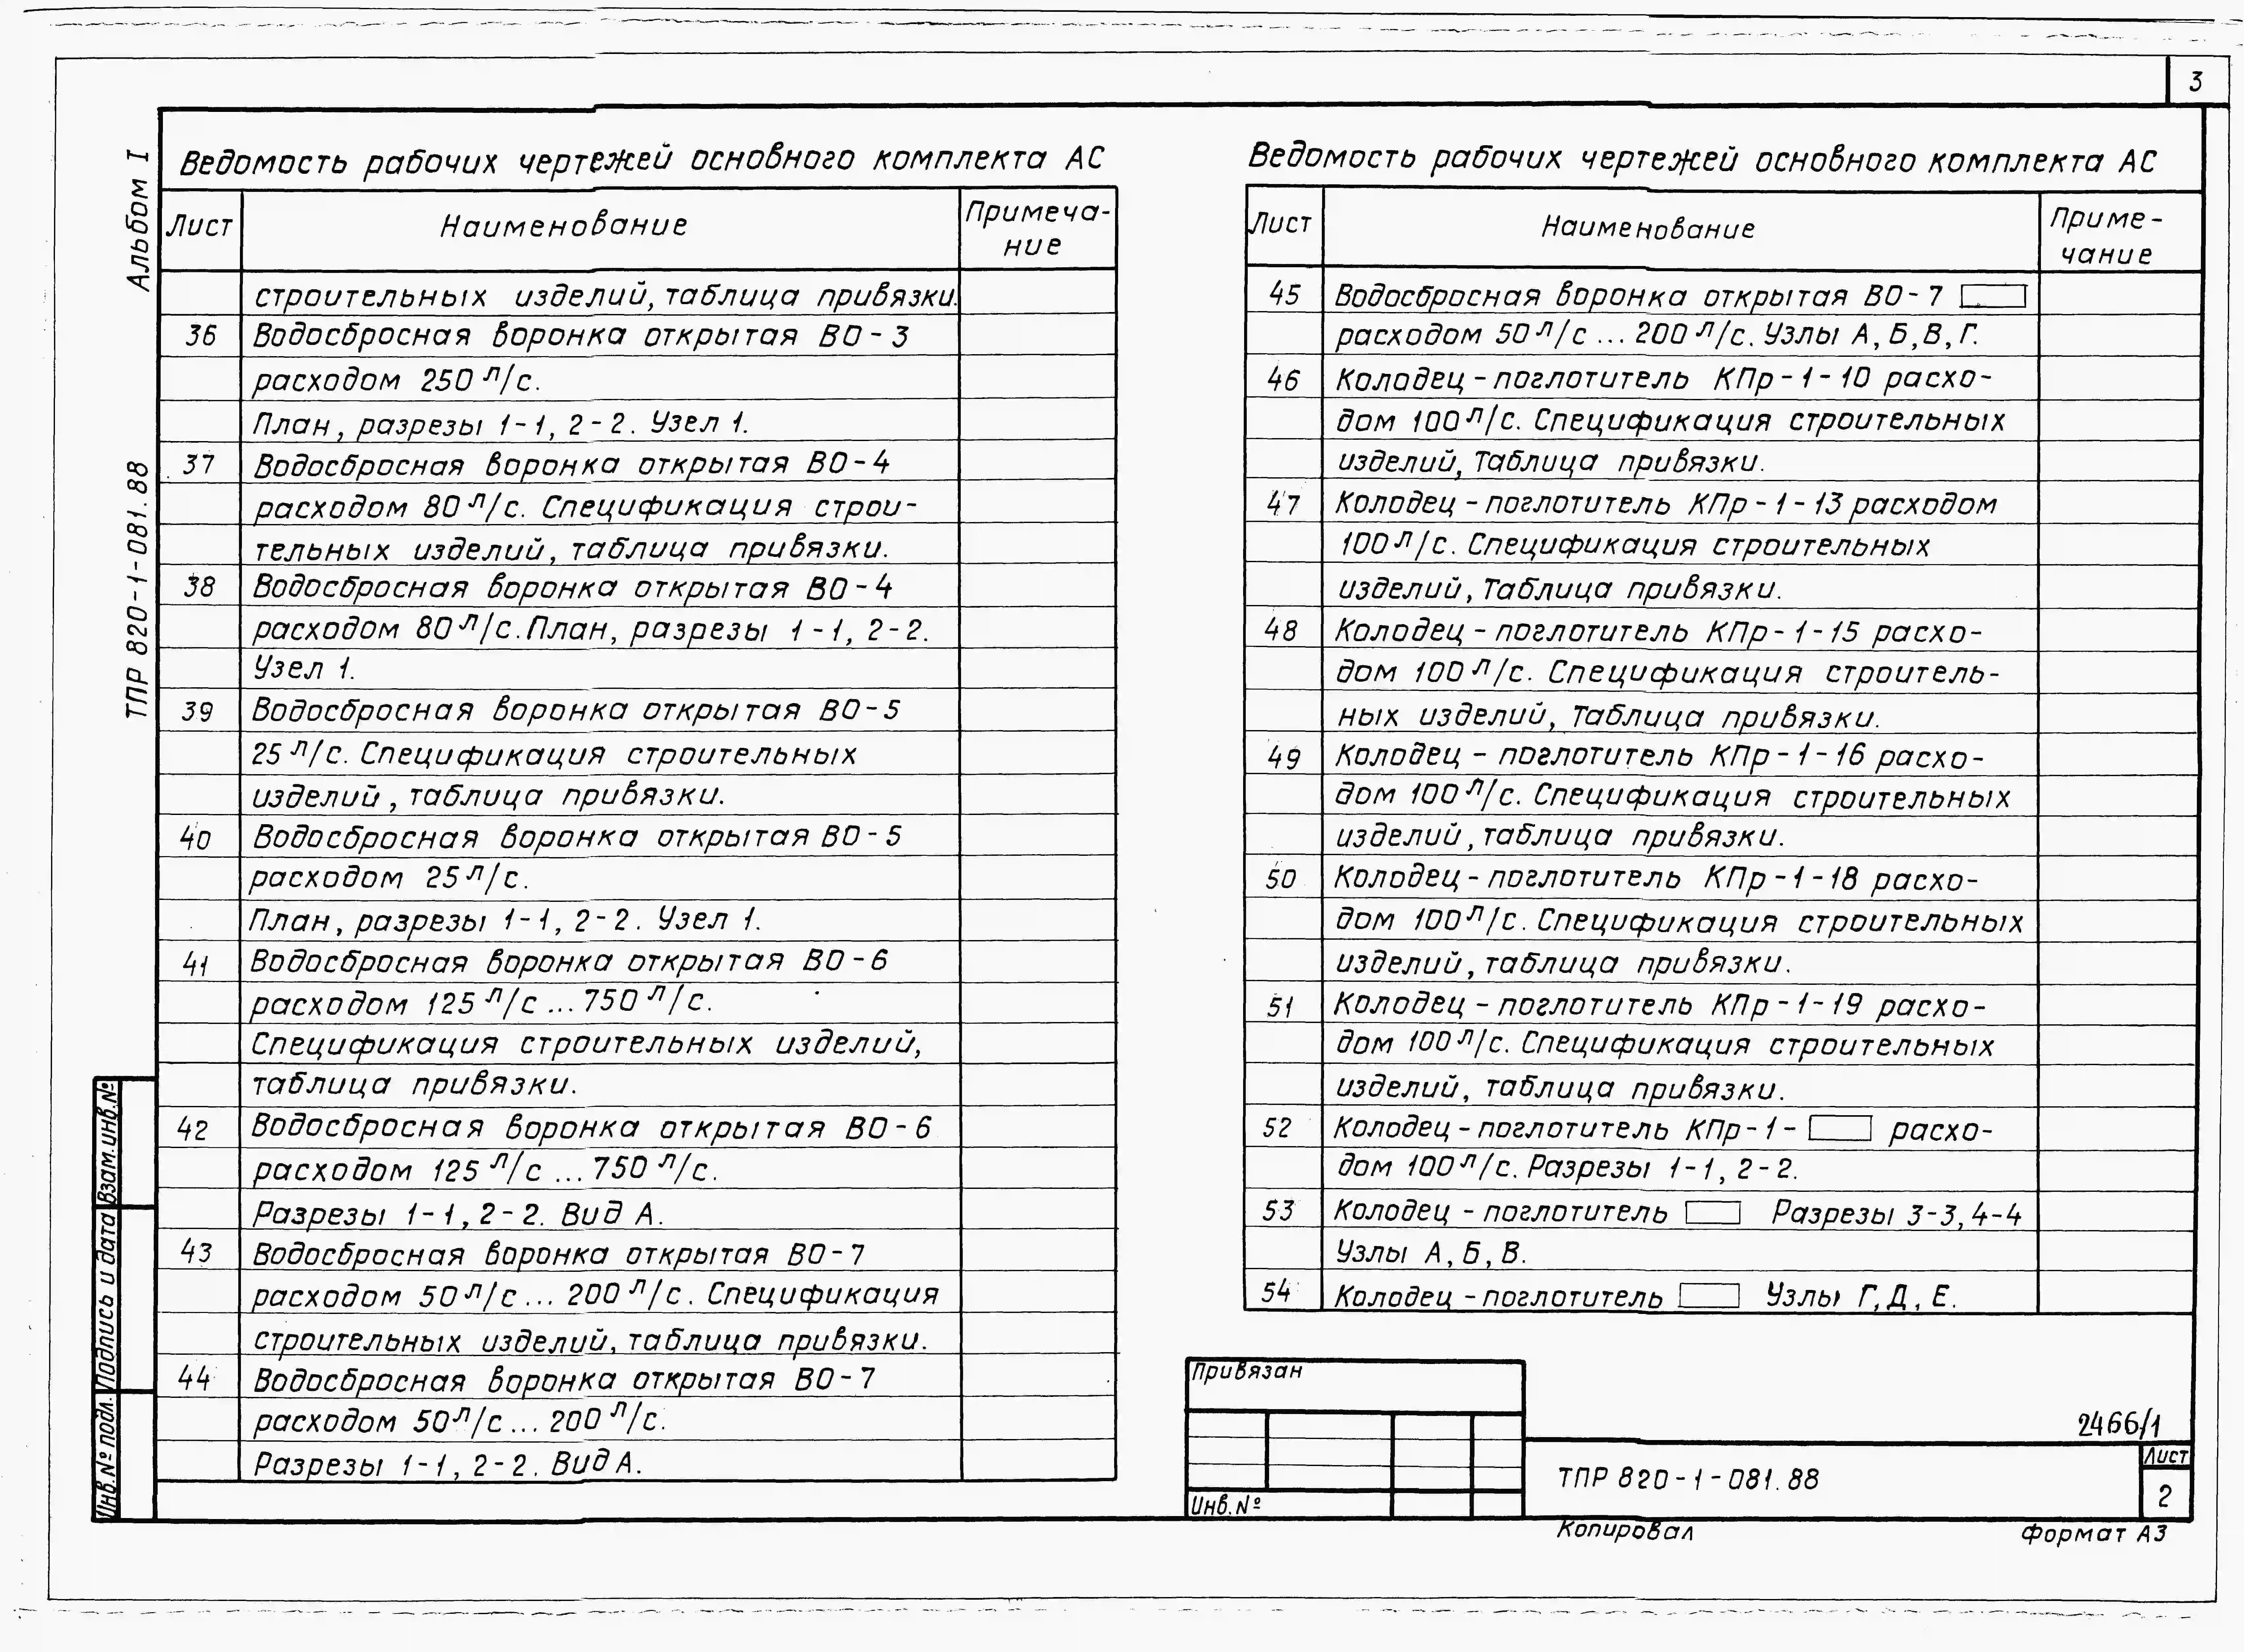 3
Альбом I
ТПР 820-1-081.88
Ведомость рабочих чертежей основного комплекта АС
Лист Наименование Примеча-
ние
строительных изделий, таблица привязки.
36 Водосбросная воронка открытая ВО-3
расходом 250 л/с.
План, разрезы 1-1, 2-2. Узел 1.
37 Водосбросная воронка открытая ВО-4
расходом 80 л/с. Спецификация строи-
тельных изделий, таблица привязки.
38 Водосбросная воронка открытая ВО-4
расходом 80 л/с. План, разрезы 1-1, 2-2.
Узел 1.
39 Водосбросная воронка открытая ВО-5
25 л/с. Спецификация строительных
изделий, таблица привязки.
40 Водосбросная воронка открытая ВО-5
расходом 25 л/с.
План, разрезы 1-1, 2-2. Узел 1.
41 Водосбросная воронка открытая ВО-6
расходом 125 л/с ... 750 л/с.
Спецификация строительных изделий,
таблица привязки.
42 Водосбросная воронка открытая ВО-6
расходом 125 л/с ... 750 л/с.
Разрезы 1-1, 2-2. Вид А.
43 Водосбросная воронка открытая ВО-7
расходом 50 л/с ... 200 л/с. Спецификация
строительных изделий, таблица привязки.
44 Водосбросная воронка открытая ВО-7
расходом 50 л/с ... 200 л/с.
Разрезы 1-1, 2-2. Вид А.
Ведомость рабочих чертежей основного комплекта АС
Лист Наименование Приме-
чание
45 Водосбросная воронка открытая ВО-7
расходом 50 л/с ... 200 л/с. Узлы А, Б, В, Г.
46 Колодец-поглотитель КПр-1-10 расхо-
дом 100 л/с. Спецификация строительных
изделий, Таблица привязки.
47 Колодец-поглотитель КПр-1-13 расходом
100 л/с. Спецификация строительных
изделий, Таблица привязки.
48 Колодец-поглотитель КПр-1-15 расхо-
дом 100 л/с. Спецификация строитель-
ных изделий, Таблица привязки.
49 Колодец-поглотитель КПр-1-16 расхо-
дом 100 л/с. Спецификация строительных
изделий, таблица привязки.
50 Колодец-поглотитель КПр-1-18 расхо-
дом 100 л/с. Спецификация строительных
изделий, таблица привязки.
51 Колодец-поглотитель КПр-1-19 расхо-
дом 100 л/с. Спецификация строительных
изделий, таблица привязки.
52 Колодец-поглотитель КПр-1- расхо-
дом 100 л/с. Разрезы 1-1, 2-2.
53 Колодец-поглотитель Разрезы 3-3, 4-4
Узлы А, Б, В.
54 Колодец-поглотитель Узлы Г, Д, Е.
Взам.инв.№
Подпись и дата
Инв.№ подл.
Привязан
Инв.№
2466/1
ТПР 820-1-081.88
Лист
2
Копировал
формат А3